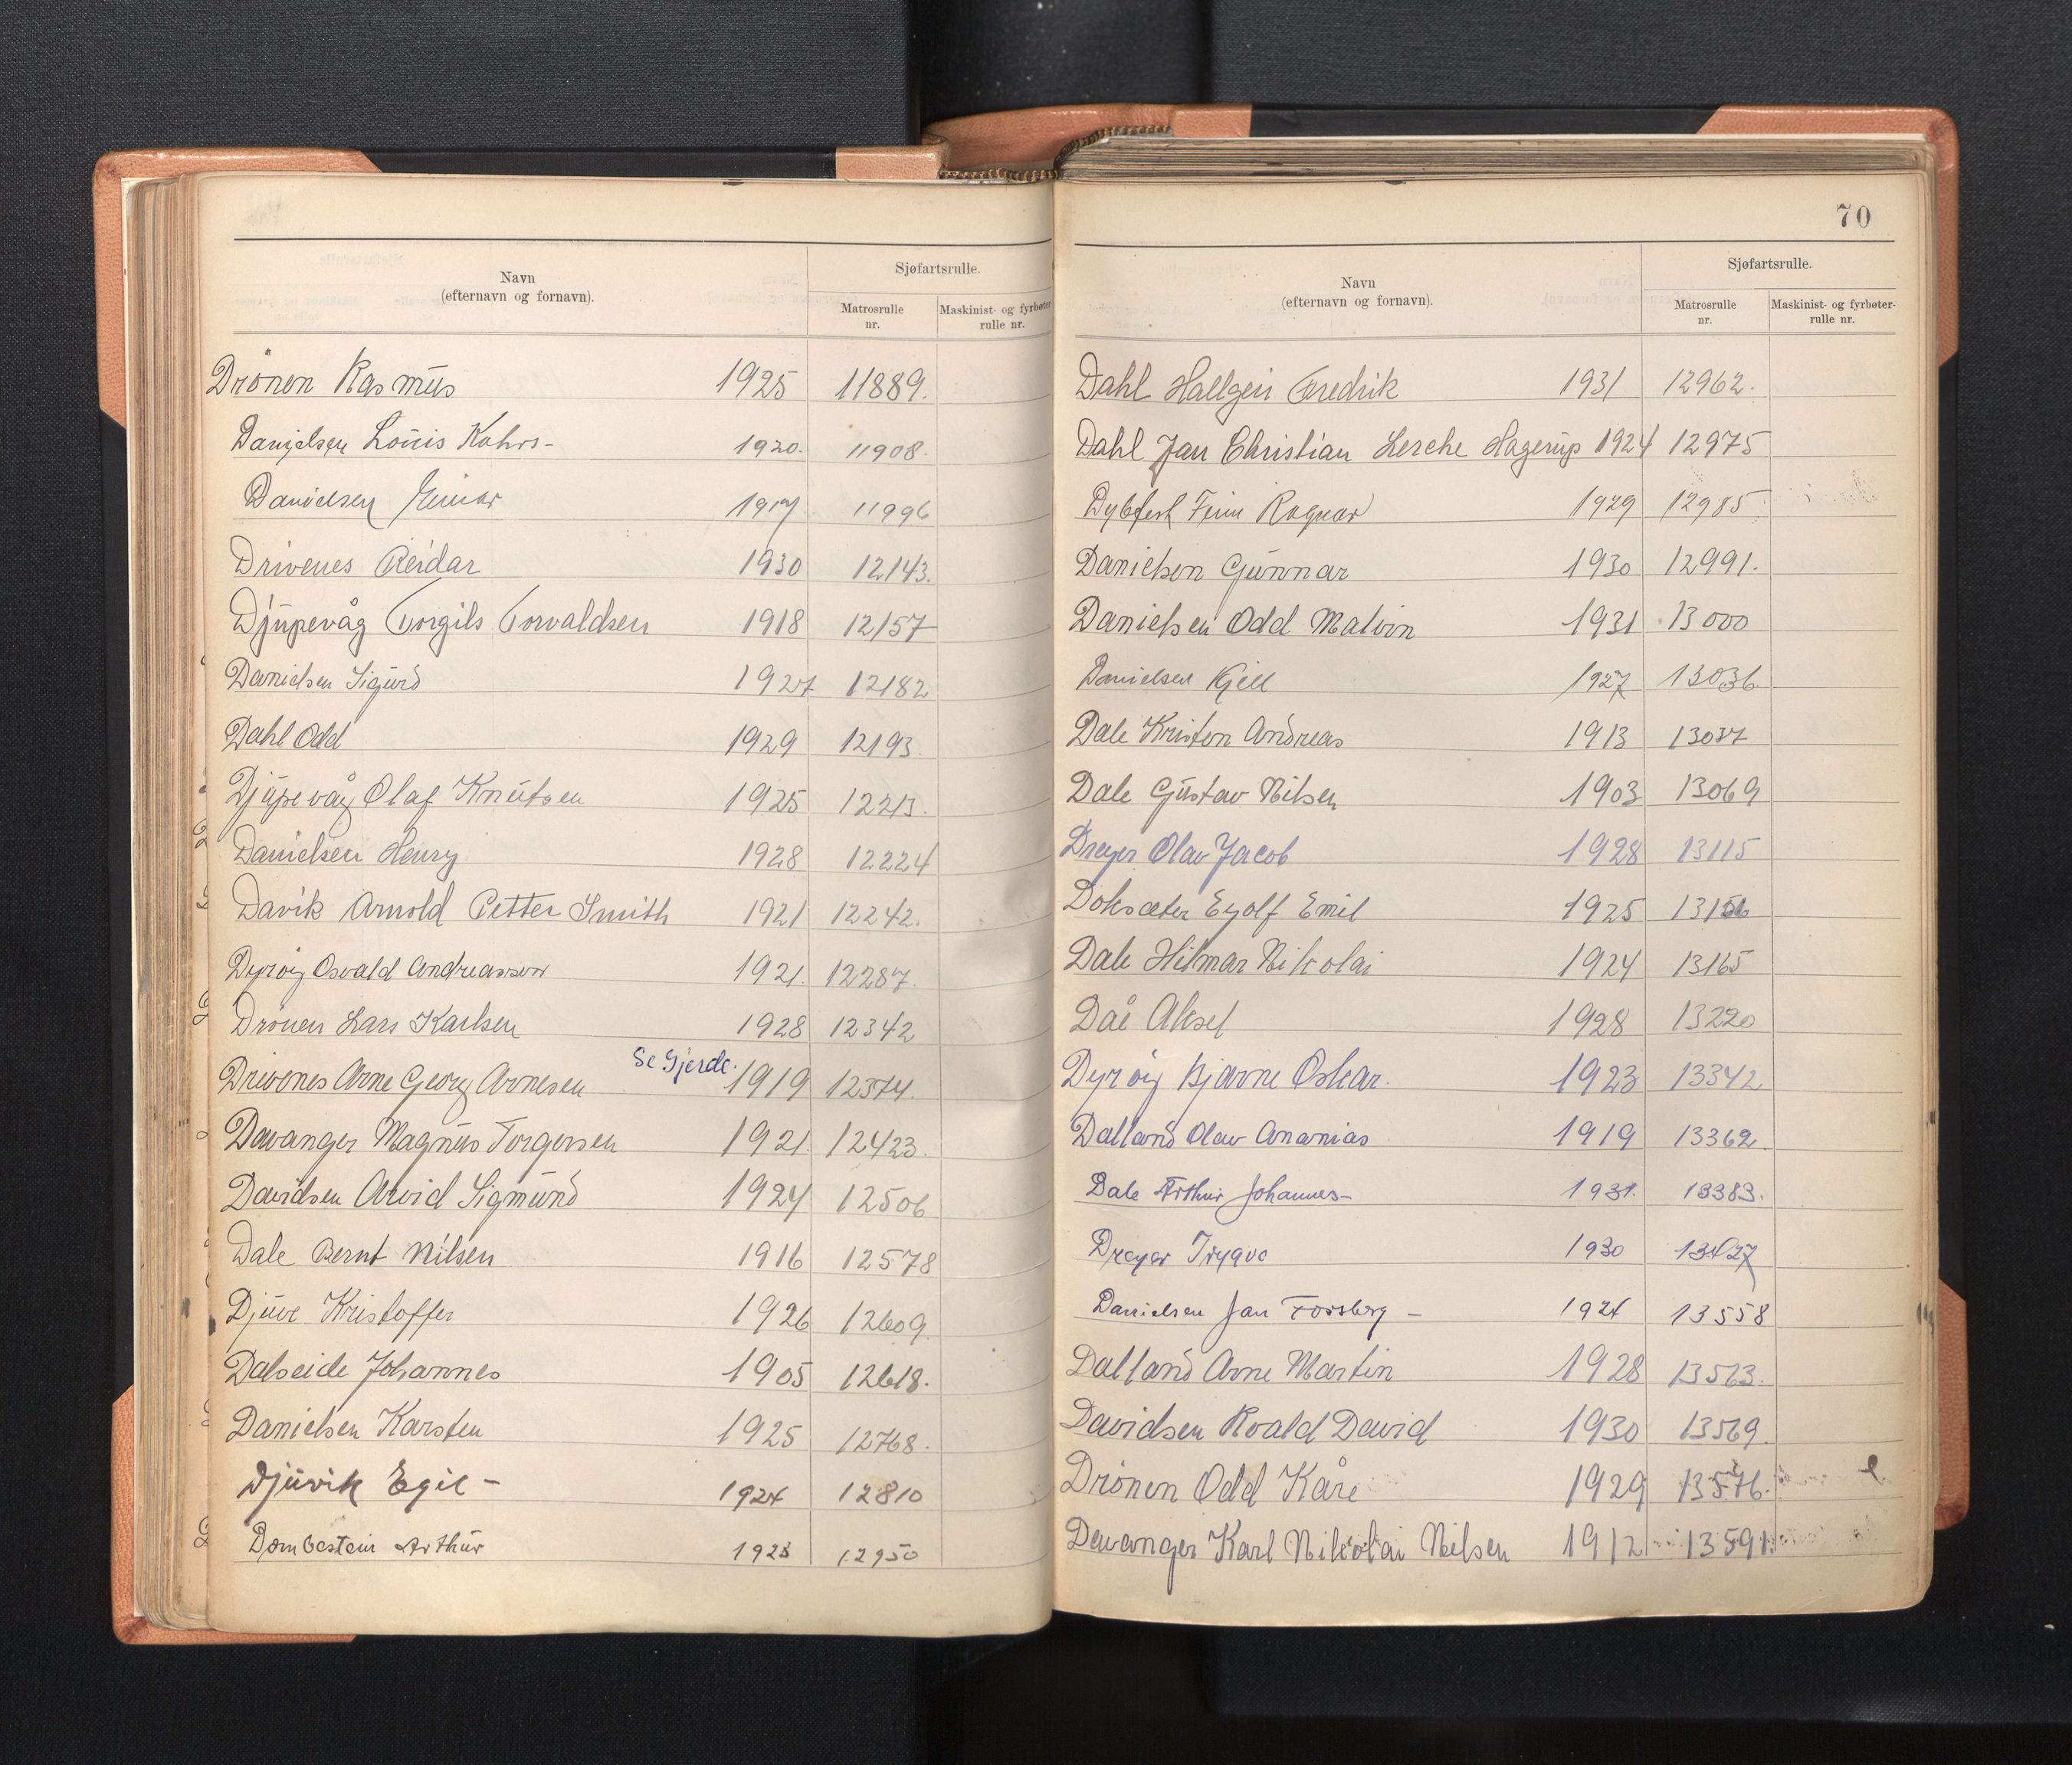 Navn
(efternavn og fornavn).
Sjøfartsrulle.
Matrosrulle nr.
Maskinist- og fyrbøter-rulle nr.
Drönen Rasmus 1925 11889.
Danielsen Louis Kahrs- 1920. 11908.
Danielsen Einar 1917 11996
Drivenes Reidar 1930 12143.
Djupevåg Torgils Torvaldsen 1918 12157
Danielsen Sigurd 1927 12182
Dahl Odd 1929 12193.
Djupevåg Olaf Knutsen 1925 12213.
Danielsen Henry 1928 12224
Davik Arnold Petter Smith 1921 12242.
Dyröy Osvald Andreassen 1921. 12287.
Drönen Lars Karlsen 1928 12342
Drivenes Arne Georg Arnesen Se Gjerde. 1919 12374.
Davanger Magnus Torgersen 1921. 12423.
Davidsen Arvid Sigmund 1924 12506
Dale Bernt Nilsen 1916 12578
Djuve Kristoffer 1926 12609.
Dalseide Johannes 1905 12618.
Danielsen Karsten 1925 12768.
Djuvik Egil - 1924 12810
Dombestein Arthur 1923 12950
70
Navn
(efternavn og fornavn).
Sjøfartsrulle.
Matrosrulle nr.
Maskinist- og fyrbøter-rulle nr.
Dahl Hallgeir Fredrik 1931 12962.
Dahl Jan Christian Lerche Hagerup 1924 12975
Dybfest Finn Ragnar 1929 12985
Danielsen Gunnar 1930 12991.
Danielsen Odd Malvin 1931 13000
Danielsen Kjell 1927 13036.
Dale Kristen Andreas 1913 13037
Dale Gustav Nilsen 1903 13069
Dreyer Olav Jacob 1928 13115
Doksæter Eyolf Emil 1925 13156
Dale Hilmar Nikolai 1924 13165
Daë Aksel 1928 13220
Dyröy Bjarne Oskar. 1923 13342
Dalland Olav Ananias 1919 13362.
Dale Arthur Johannes- 1931. 13383.
Dreyer Trygve 1930 13427
Danielsen Jan Forsberg - 1924 13558
Dalland Arne Martin 1928 13563.
Davidsen Roald David 1930 13569.
Drönen Odd Kåre 1929 13576.
Davanger Karl Nikolai Nilsen 1912 13591.